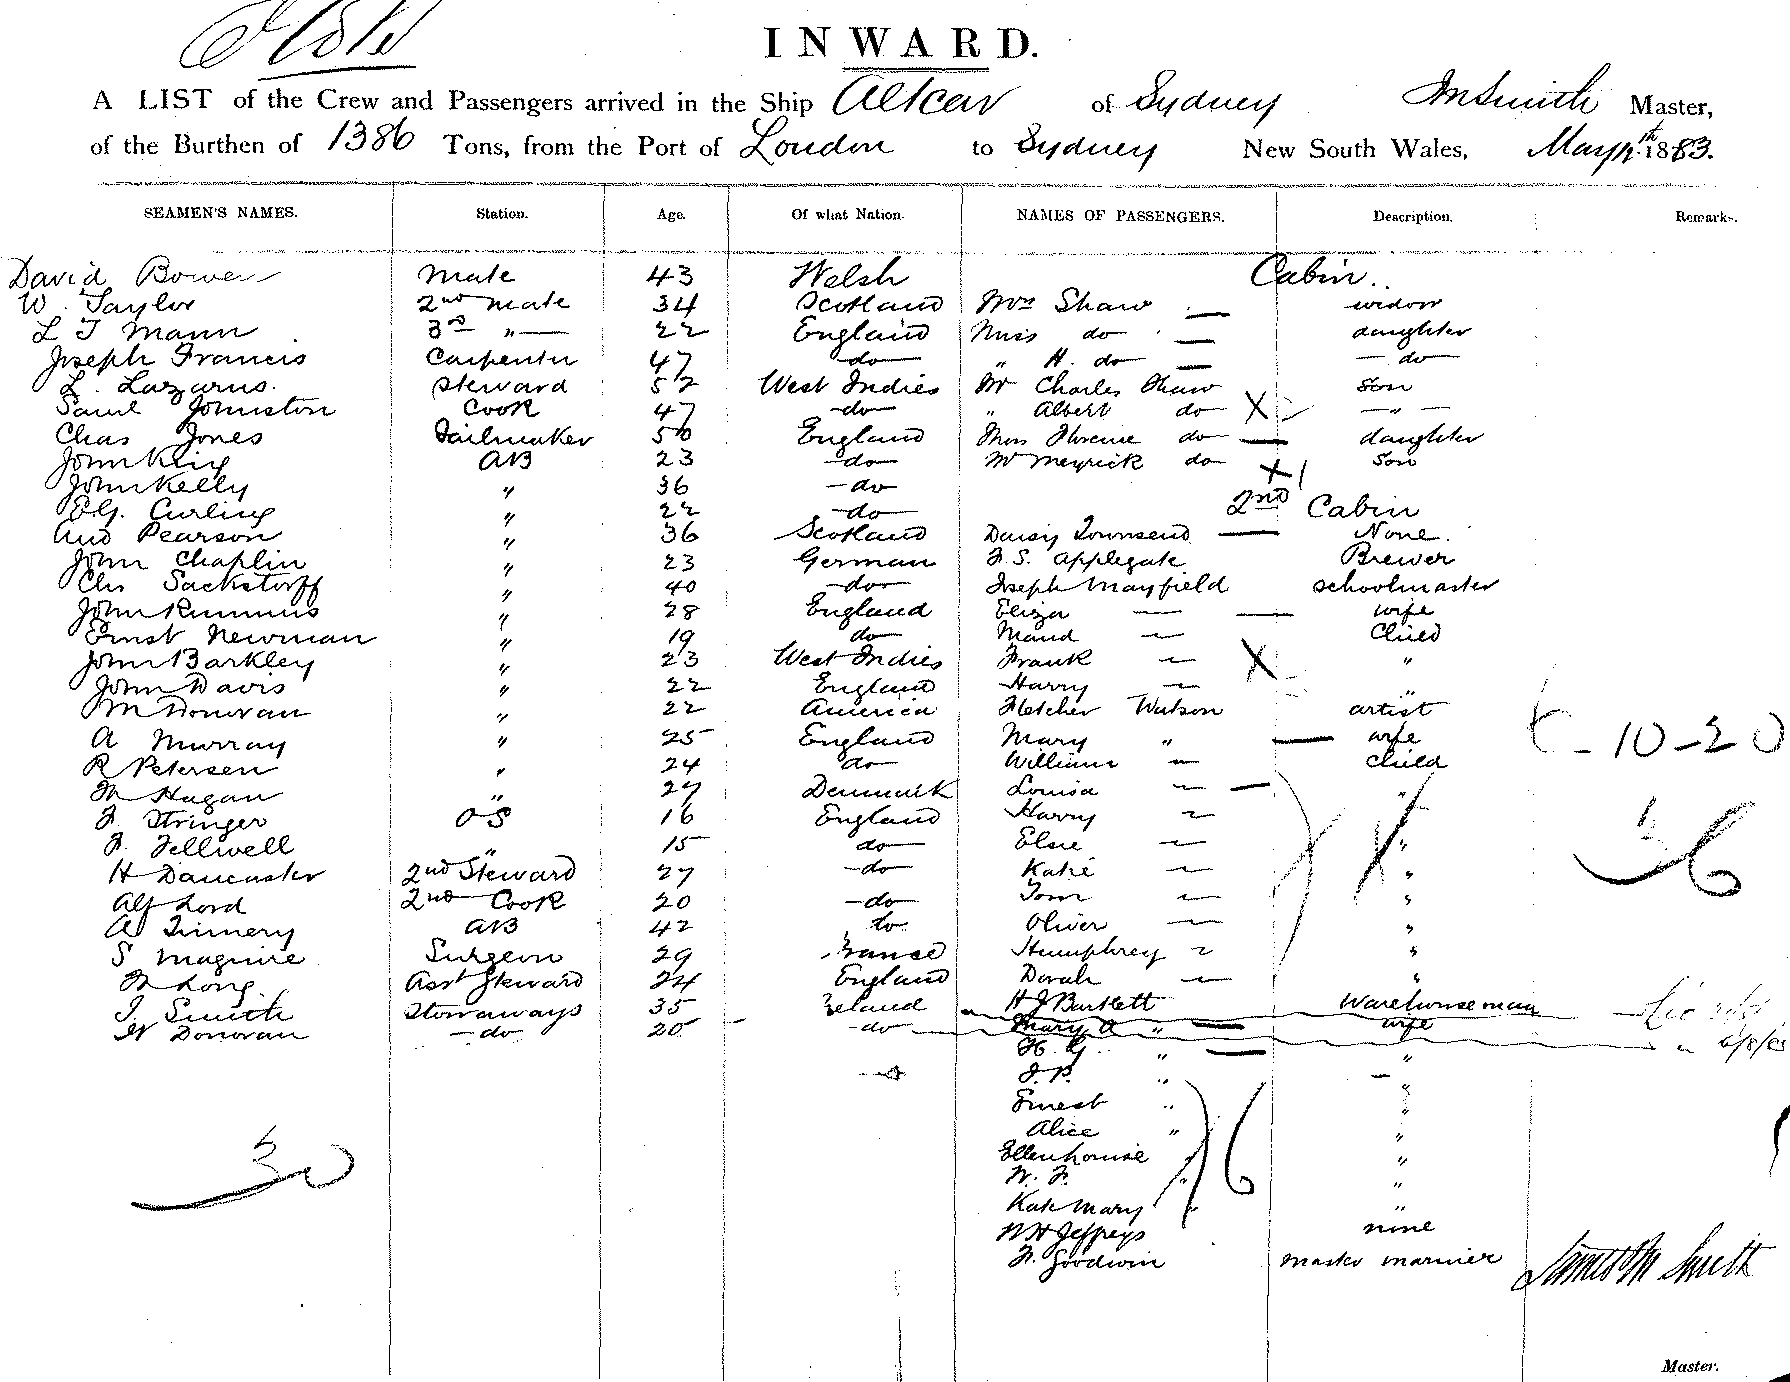 INWARD.
A LIST of the Crew and Passengers arrived in the Ship Altcar of Sydney Jn Smith Master,
of the Burthen of 1386 Tons, from the Port of London to Sydney New South Wales, May 1883.
SEAMEN'S NAMES. Station. Age. Of what Nation. NAMES OF PASSENGERS. Description. Remarks.
David Bower Mate 43 Welsh Cabin..
W. Taylor 2nd mate 34 Scotland Mrs Shaw — widow
L J Mann 3rd " — 22 England Miss do — daughter
Joseph Francis Carpenter 47 do " H. do — do
L. Lazarus. Steward 52 West Indies Mr Charles Shaw son
Saml Johnston Cook 47 do " Albert do X — " —
Chas Jones Sailmaker 50 England Miss Florence do — daughter
John King AB 23 do Mr Meyrick do X son
John Kelly " 36 do
Curling " 22 do 2nd Cabin
And Pearson " 36 Scotland Daisy Townsend — None.
John Chaplin " 23 German F. S. Applegate Brewer
Chs Sackstorff " 40 do Joseph Mayfield schoolmaster
John Rummus " 28 England Eliza — — wife
Ernst Newman " 19 do Maud — Child
John Barkley " 23 West Indies Frank — X "
John Davis " 22 England Harry — "
M Donovan " 22 America Fletcher Watson artist
A Murray " 25 England Mary " — wife
R Petersen " 24 do William — child 10-20
Hagan " 27 Denmark Louisa — — "
F. Stringer OS 16 England Harry —
F. Felliwell " 15 do Elsie — " 36
H Dancaster 2nd Steward 27 do Katie — "
Alf Lord 2nd Cook 20 do Tom — "
A Finnery AB 42 do Oliver — "
S Maguire Surgeon 29 France Humphrey — "
Long. Asst Steward 24 England Dorah — "
J. Smith Stowaways 35 Ireland H J Bartlett Warehouseman
W Donovan do 20 do Mary A " — wife
H. G. " — "
J. P. " "
Ernest " "
Alice " "
Ellen Louise " 6
W. F. " "
30 Kate Mary " "
W H Jeffreys none
F. Goodwin master mariner
James M Smith
Master.